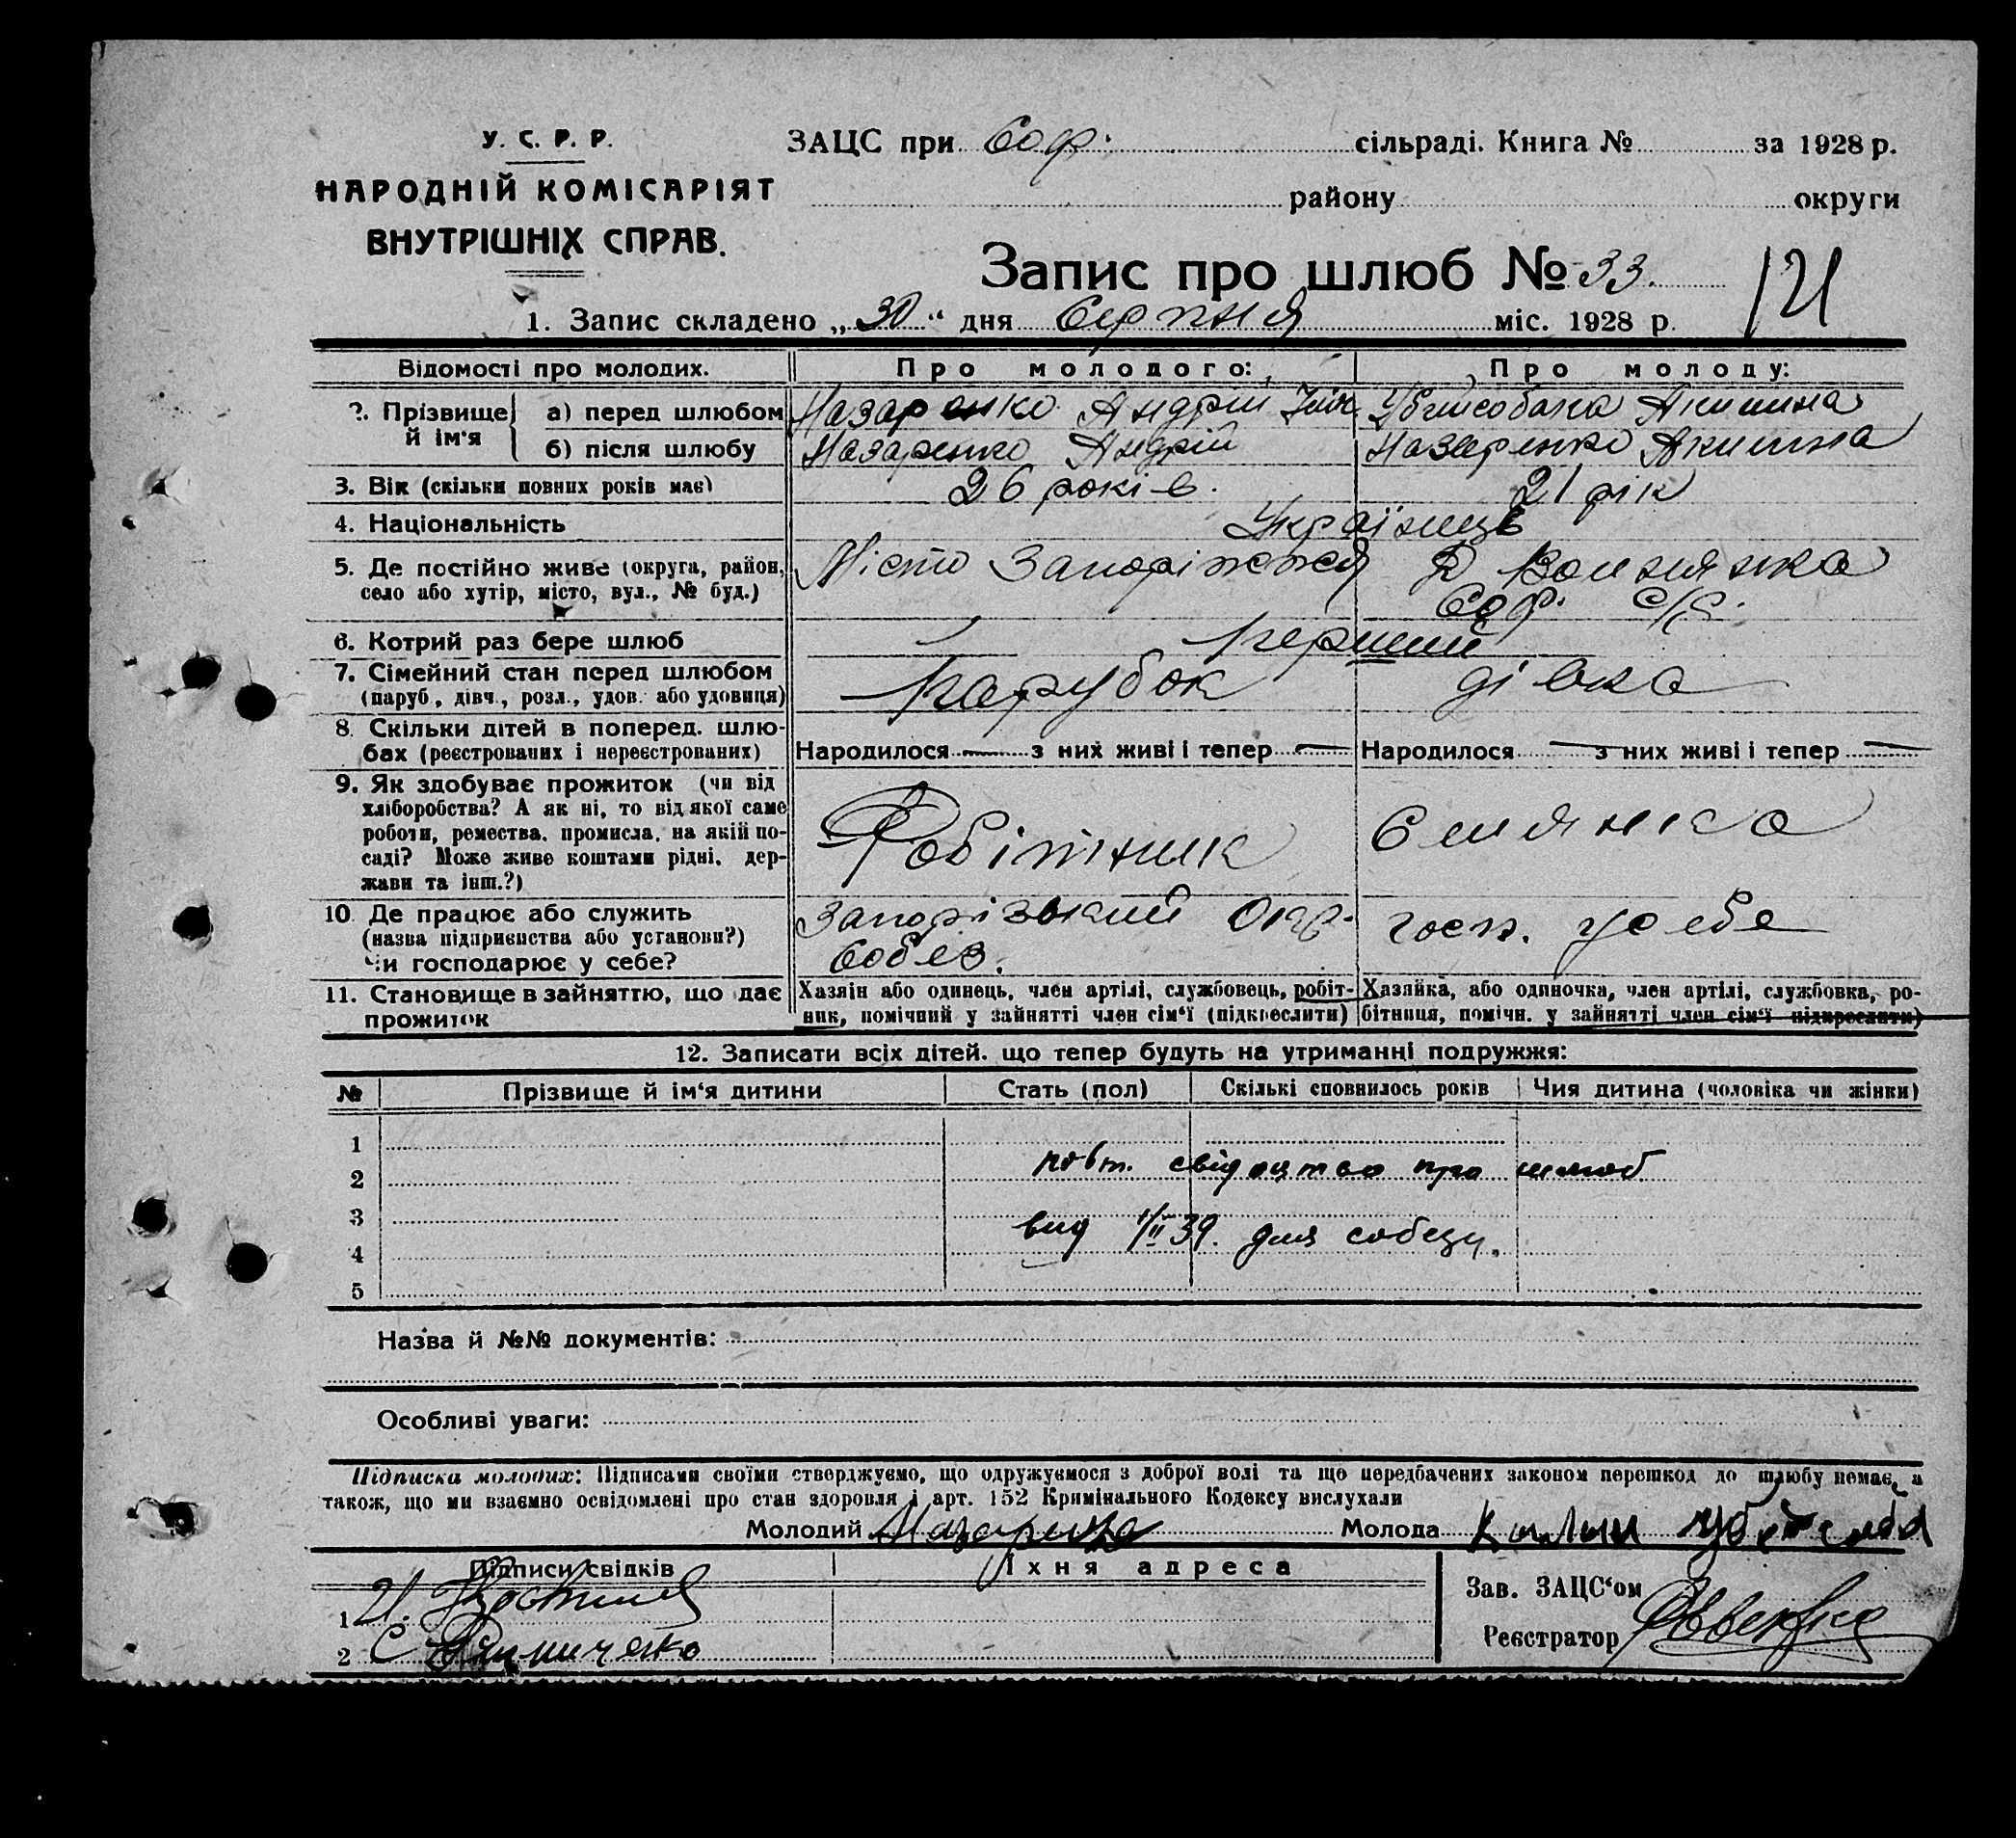 У. С. Р. Р.
НАРОДНІЙ КОМІСАРІЯТ
ВНУТРІШНІХ СПРАВ.
ЗАЦС при Соф. сільраді. Книга № за 1928 р.
району округи
Запис про шлюб № 33.
121
1. Запис складено „30" дня Серпня міс. 1928 р.
Відомості про молодих. Про молодого: Про молоду:
2. Прізвище й ім'я
а) перед шлюбом Назаренко Андрій Убийсобака Акилина
б) після шлюбу Назаренко Андрій Назаренко Акилина
3. Вік (скільки повних років має) 26 років. 21 рік
4. Національність Українець
5. Де постійно живе (округа, район, село або хутір, місто, вул., № буд.) Місто Запоріжжя Вольнянка Соф. с/р.
6. Котрий раз бере шлюб перший
7. Сімейний стан перед шлюбом (паруб., дівч., розл., удов. або удовиця) Парубок дівка
8. Скільки дітей в поперед. шлюбах (реєстрованих і нереєстрованих) Народилося — з них живі і тепер — Народилося — з них живі і тепер —
9. Як здобуває прожиток (чи від хліборобства? А як ні, то від якої саме роботи, ремества, промисла, на якій посаді? Може живе коштами рідні, держави та інш.?) Робітник Слянка
10. Де працює або служить (назва підприємства або установи?) Чи господарює у себе? Запорізький Окр. Собез. госп. у себе
11. Становище в зайняттю, що дає прожиток
Хазяін або одинець, член артілі, службовець, робітник, помічний у зайнятті член сім'ї (підкреслити)
Хазяйка, або одиночка, член артілі, службовка, робітниця, помічн. у зайнятті член сім'ї підкреслити)
12. Записати всіх дітей, що тепер будуть на утриманні подружжя:
№ Прізвище й ім'я дитини Стать (пол) Скількі сповнилось років Чия дитина (чоловіка чи жінки)
1
2 повт. свідоцтво про шлюб
3
4 вид 1/II 39. для собезу.
5
Назва й №№ документів:
Особливі уваги:
Підписка молодих: Підписами своїми стверджуємо, що одружуємося з доброї волі та що передбачених законом перешкод до шлюбу немає, а
також, що ми взаємно освідомлені про стан здоровля і арт. 152 Кримінального Кодексу вислухали
Молодий Назаренко Молода
Підписи свідків Їхня адреса
Зав. ЗАЦС'ом
1
Реєстратор
2